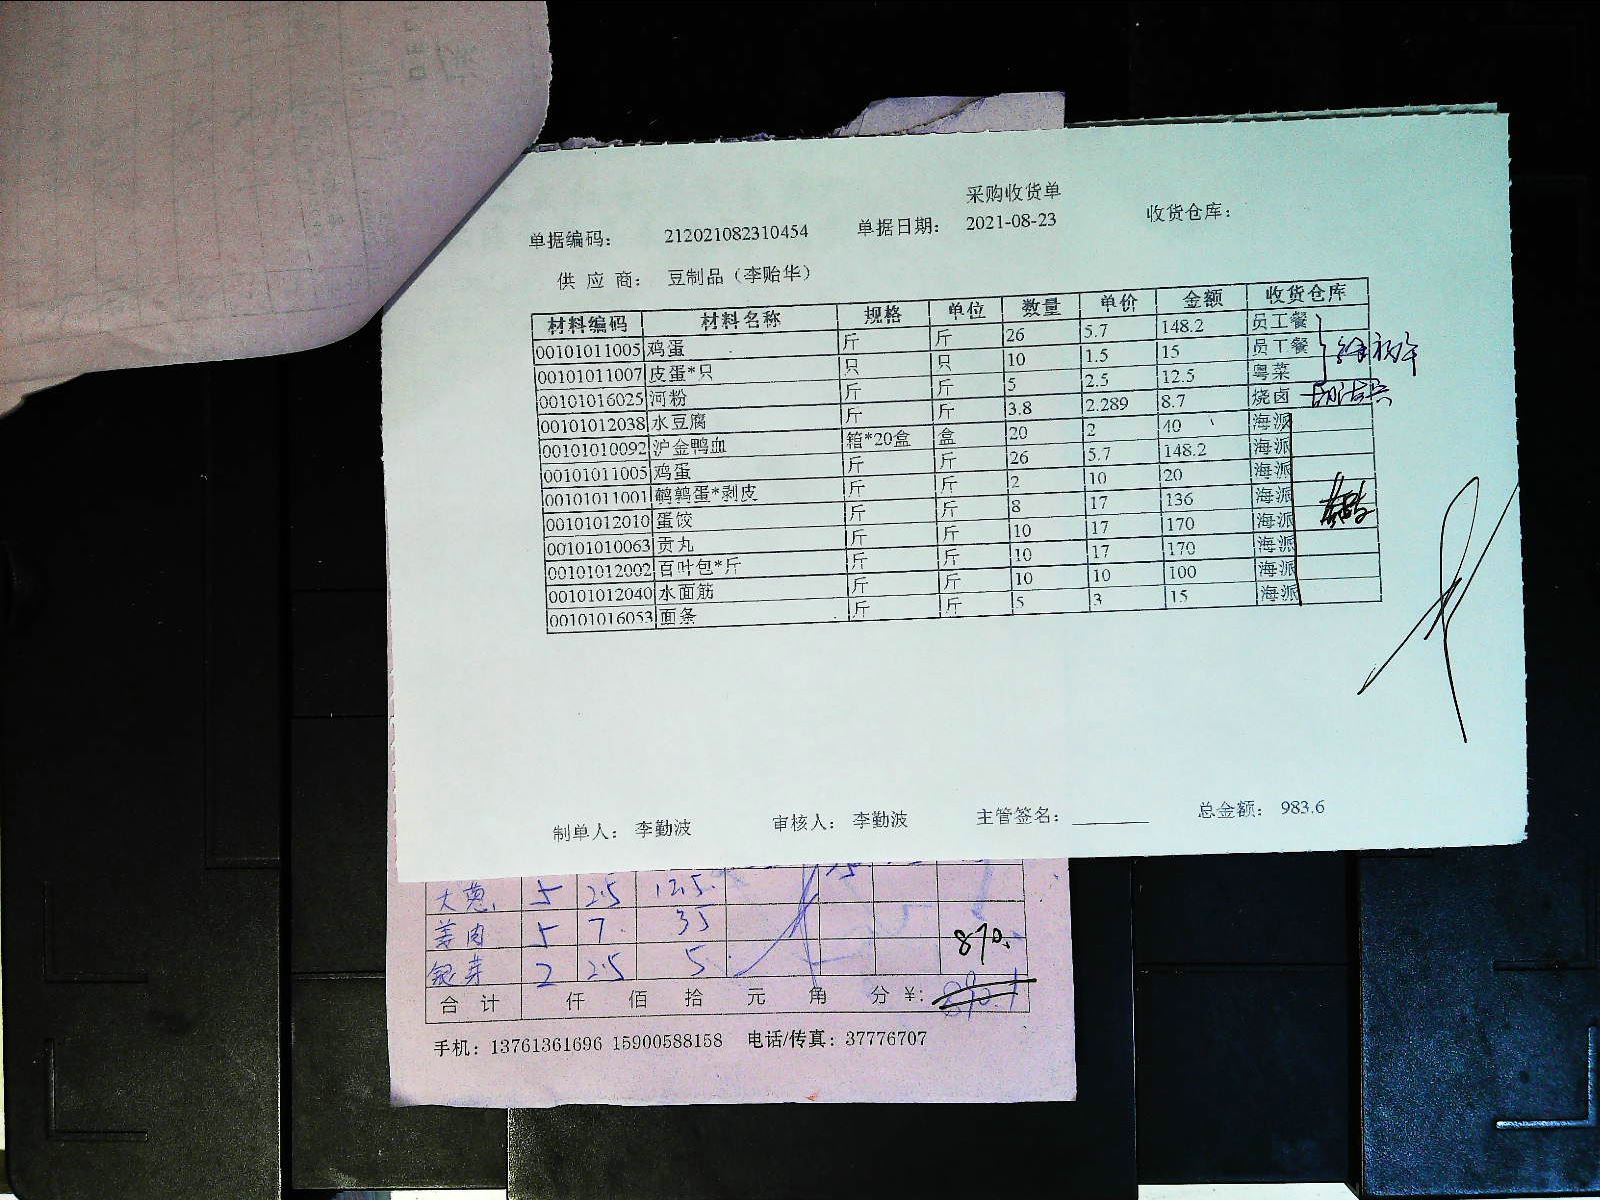 采购收货单
单据编码： 212021082310454 单据日期： 2021-08-23 收货仓库：
供 应 商： 豆制品（李贻华）
材料编码 材料名称 规格 单位 数量 单价 金额 收货仓库
00101011005 鸡蛋 斤 斤 26 5.7 148.2 员工餐
00101011007 皮蛋*只 只 只 10 1.5 15 员工餐
00101016025 河粉 斤 斤 5 2.5 12.5 粤菜
00101012038 水豆腐 斤 斤 3.8 2.289 8.7 烧卤
00101010092 沪金鸭血 箱*20盒 盒 20 2 40 海派
00101011005 鸡蛋 斤 斤 26 5.7 148.2 海派
00101011001 鹌鹑蛋*剥皮 斤 斤 2 10 20 海派
00101012010 蛋饺 斤 斤 8 17 136 海派
00101010063 贡丸 斤 斤 10 17 170 海派
00101012002 百叶包*斤 斤 斤 10 17 170 海派
00101012040 水面筋 斤 斤 10 10 100 海派
00101016053 面条 斤 斤 5 3 15 海派
制单人： 李勤波 审核人： 李勤波 主管签名： 总金额： 983.6
大葱 5 2.5 12.5
姜肉 5 7 35
银芽 2 2.5 5 870.
合 计 仟 佰 拾 元 角 分 ¥:
手机：13761361696 15900588158 电话/传真：37776707